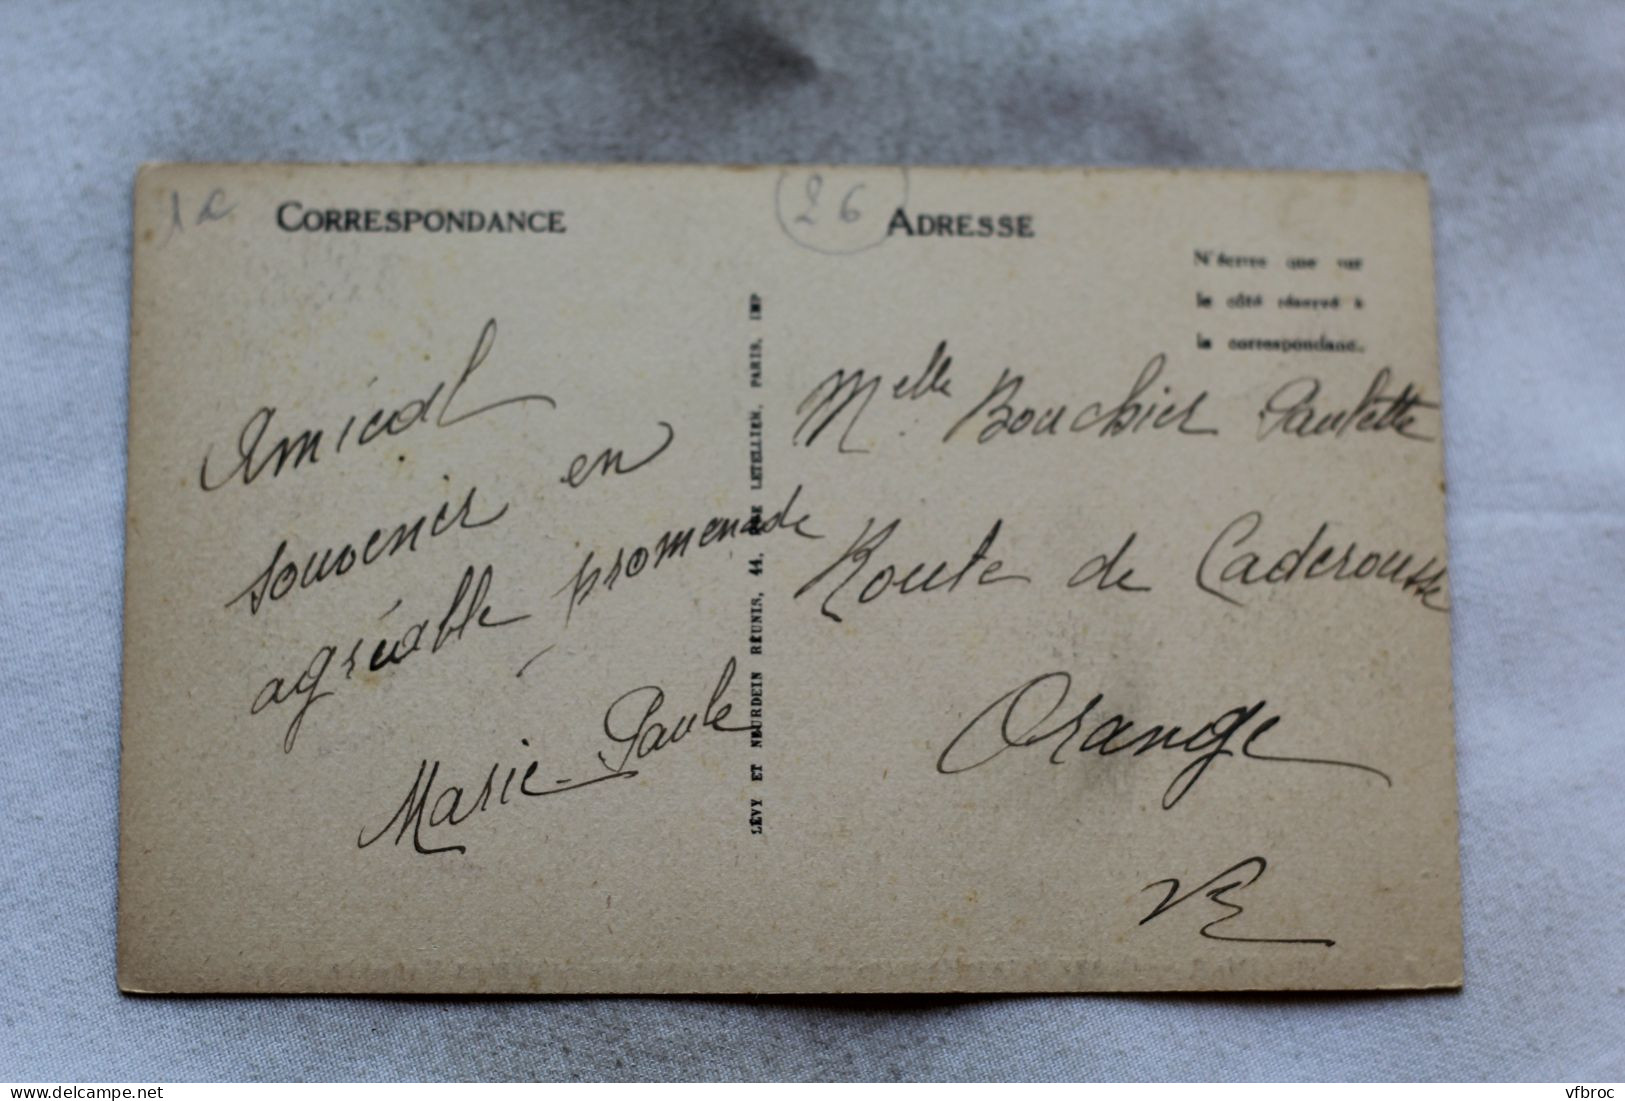 CORRESPONDANCE
26
ADRESSE
N'écrire que sur
le côté réservé à
la correspondance.
Amical
souvenir en
agréable promenade
Marie-Paule
LÉVY ET NEURDEIN RÉUNIS, 44, RUE LETELLIER, PARIS, IMP
Melle Bouchier Paulette
Route de Caderousse
Orange
delcampe.net
vfbroc